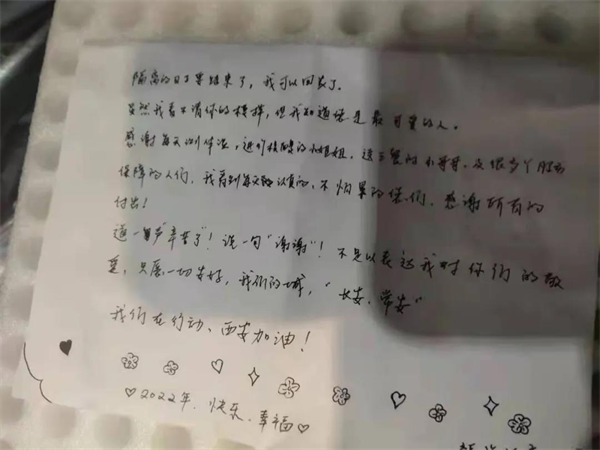 隔离的日子要结束了，我可以回家了。
虽然我看不清你的模样，但我知道你是最可爱的人。
感谢每天测体温，进行核酸的小姐姐，送三餐的小哥哥，及很多个服务
保障的人们，我看到每天认真的、不怕累的你们，感谢所有的
付出！
道一声"辛苦了"！说一句"谢谢"！不足以表达我对你们的敬
意，只愿一切安好，我们的城，"长安，常安"
我们在行动、西安加油！
♡2022年、快乐、幸福♡